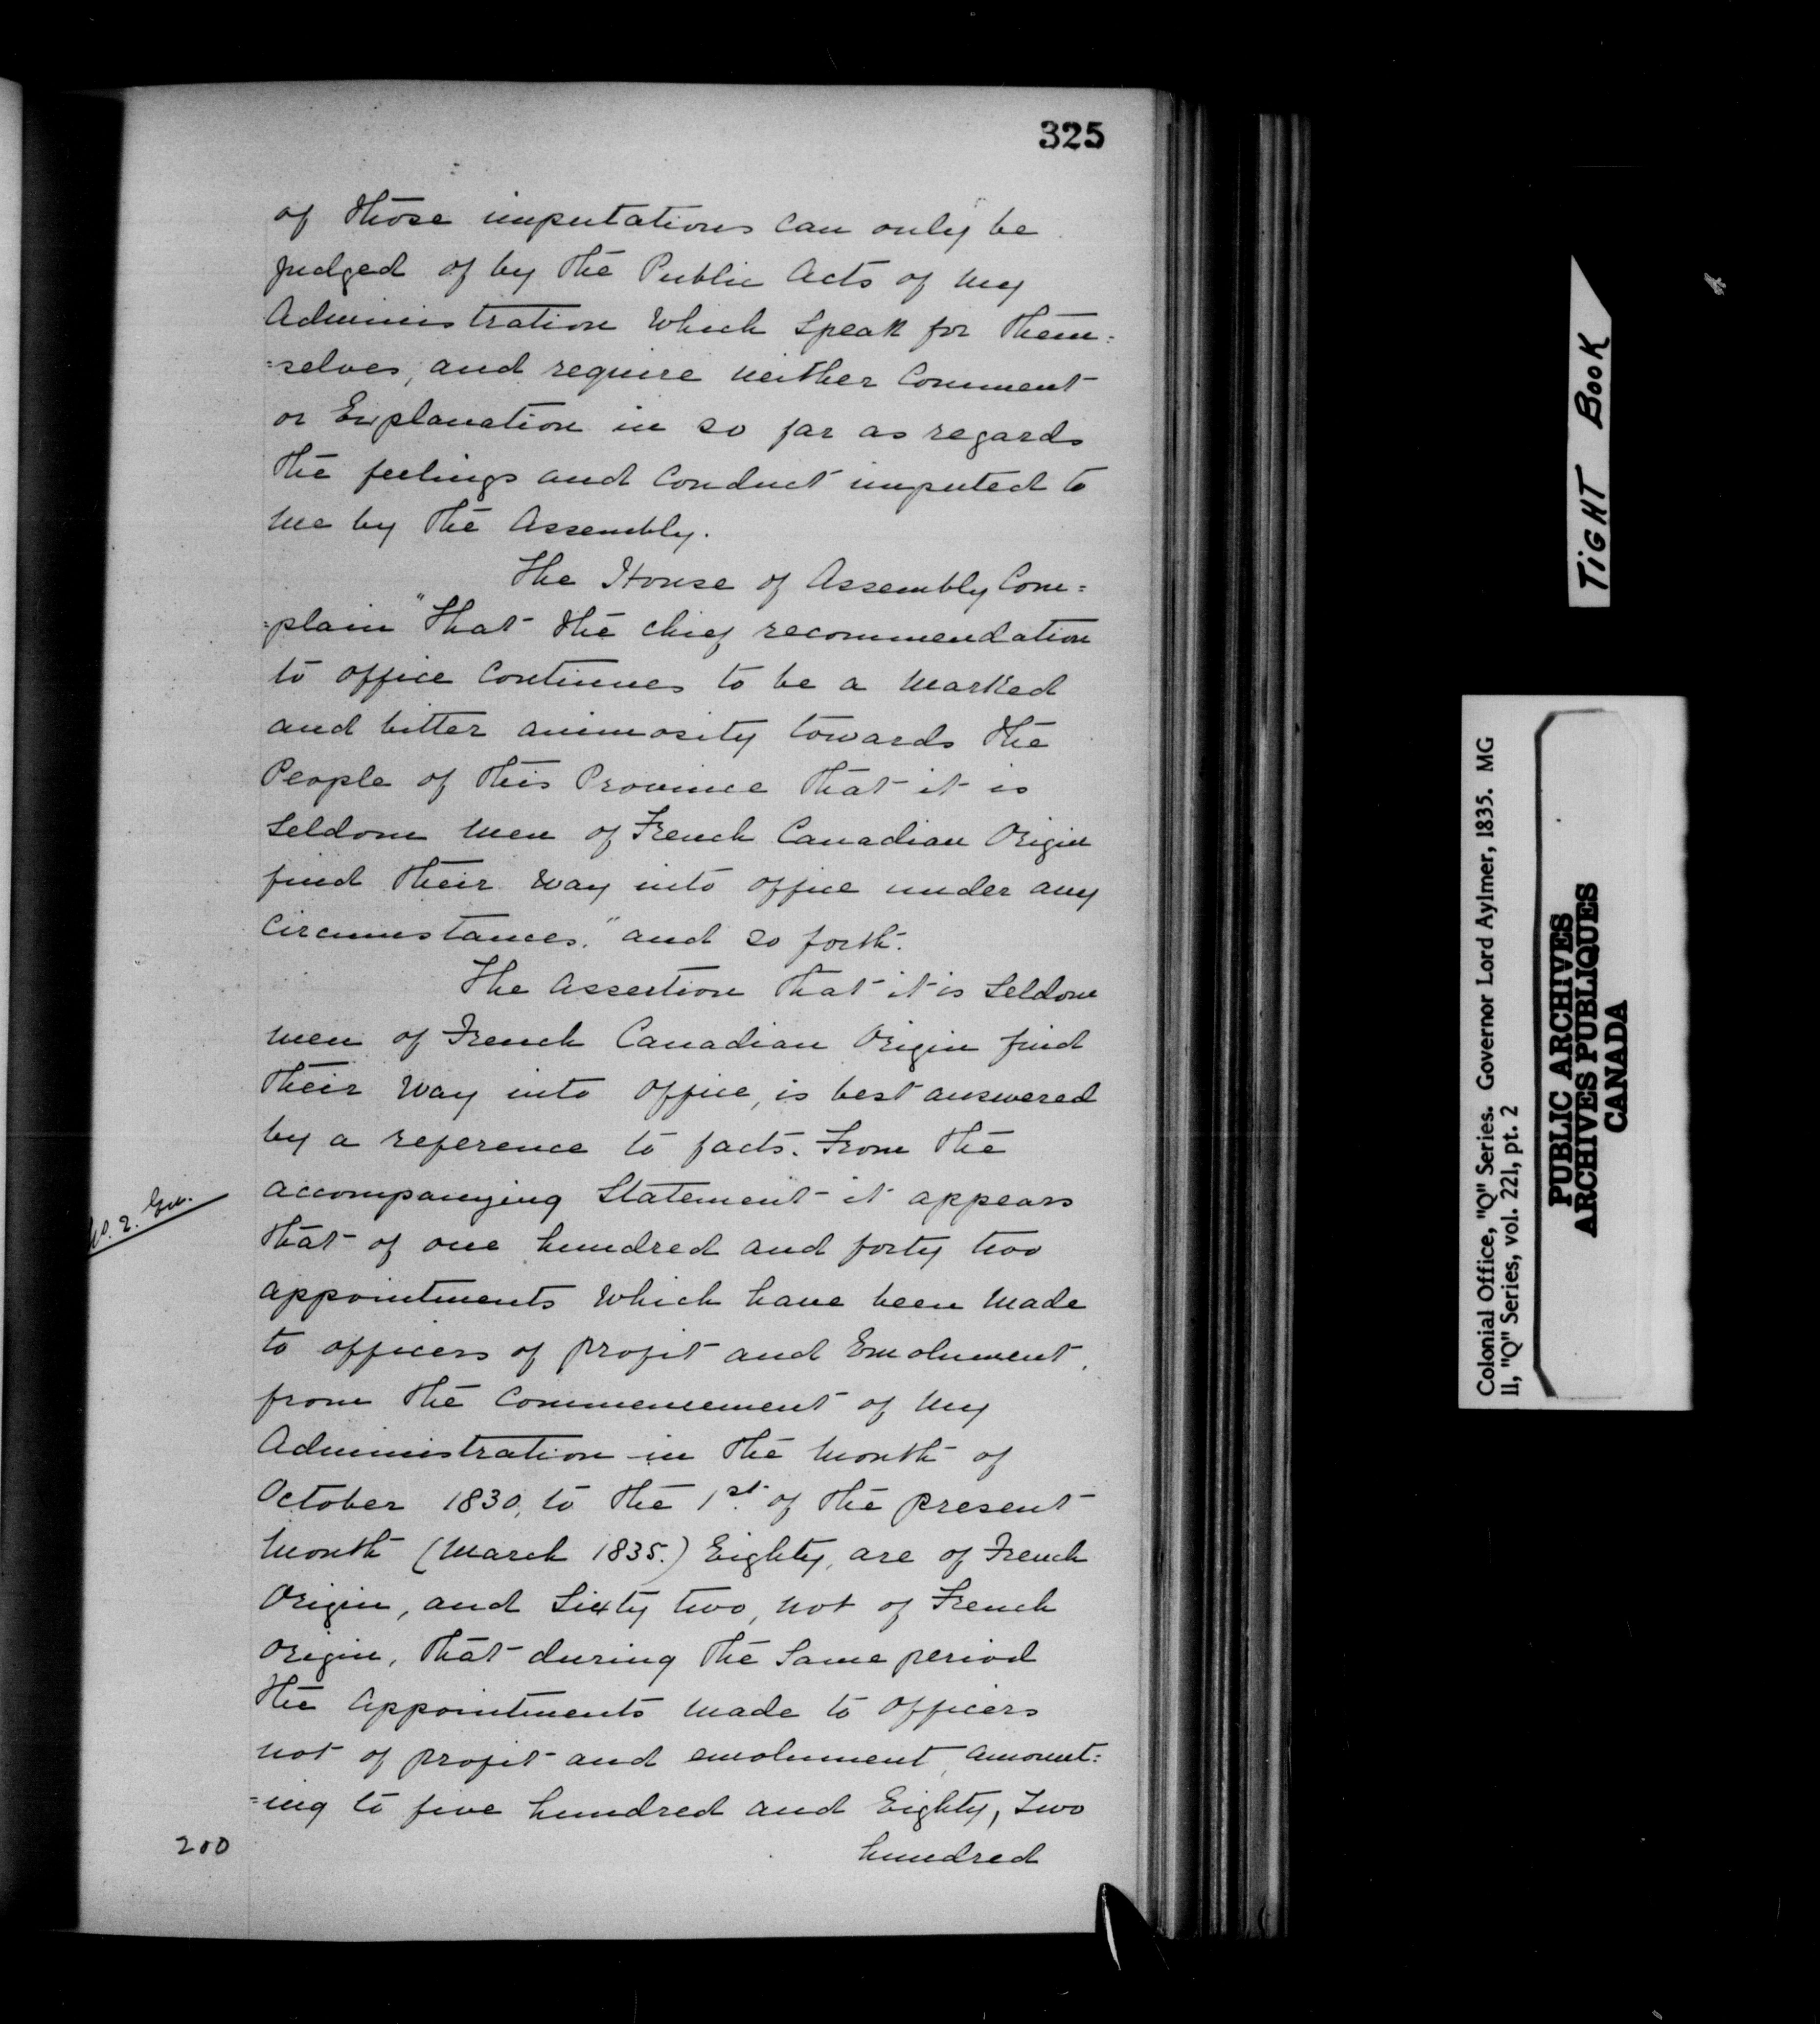 325
of those imputations can only be
judged of by the Public Acts of my
Administration which speak for them=
=selves, and require neither Comment
or Explanation in so far as regards
the feelings and Conduct imputed to
me by the Assembly.
The House of Assembly Com=
=plain "that the chief recommendation
to office Continues to be a marked
and bitter animosity towards the
People of this Province that it is
Seldom men of French Canadian Origin
find their way into office under any
Circumstances." and so forth.
The Assertion that it is Seldom
men of French Canadian Origin find
their way into office, is best answered
by a reference to facts. From the
accompanying Statement it appears
that of one hundred and forty two
appointments which have been made
to officers of profit and Emolument,
from the Commencement of my
Administration in the month of
October 1830, to the 1st. of the present
month (March 1835.) Eighty, are of French
Origin, and Sixty two, not of French
Origin, that during the Same period
the Appointments made to officers
not of profit and emolument, amount=
=ing to five hundred and Eighty, Two
200
hundred
TIGHT BOOK
Colonial Office, "Q" Series. Governor Lord Aylmer, 1835. MG
11, "Q" Series, vol. 221, pt. 2
PUBLIC ARCHIVES
ARCHIVES PUBLIQUES
CANADA